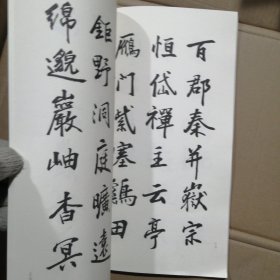 百郡秦并嶽宗
恒岱禪主云亭
鴈门紫塞鷄田
鉅野洞庭曠遠
綿邈巖岫杳冥